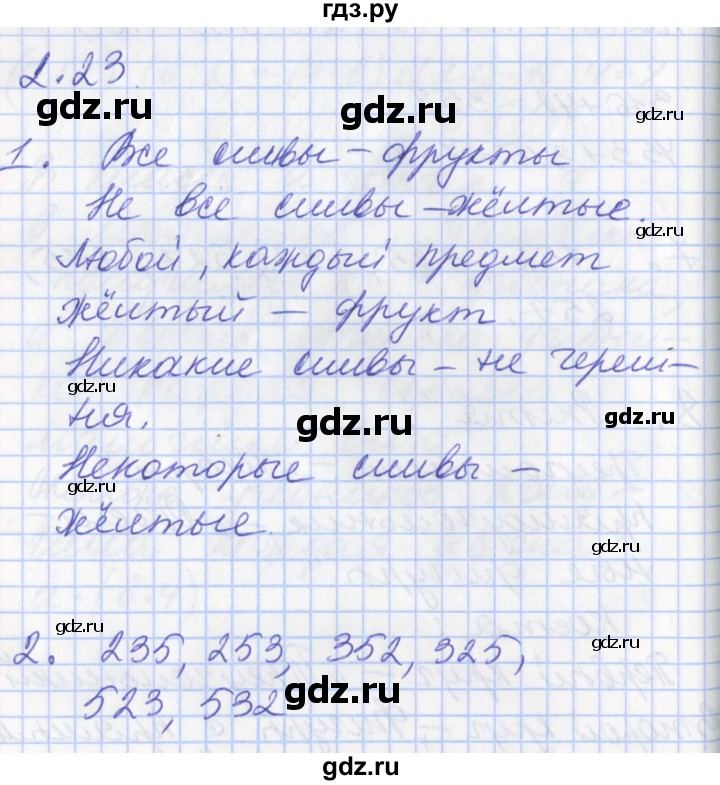 гдз.ру
2.23
gdz.ru
gdz.ru
1. Все сливы – фрукты
Не все сливы – жёлтые.
gdz.ru
Любой, каждый предмет
жёлтый – фрукт
Никакие сливы – не череш-
gdz.ru
ня.
gdz.ru
gdz.ru
Некоторые сливы –
gdz.ru
жёлтые.
gdz.ru
gdz.ru
gdz.ru
2. 235, 253, 352, 325,
523, 532
gdz.ru
gdz.ru